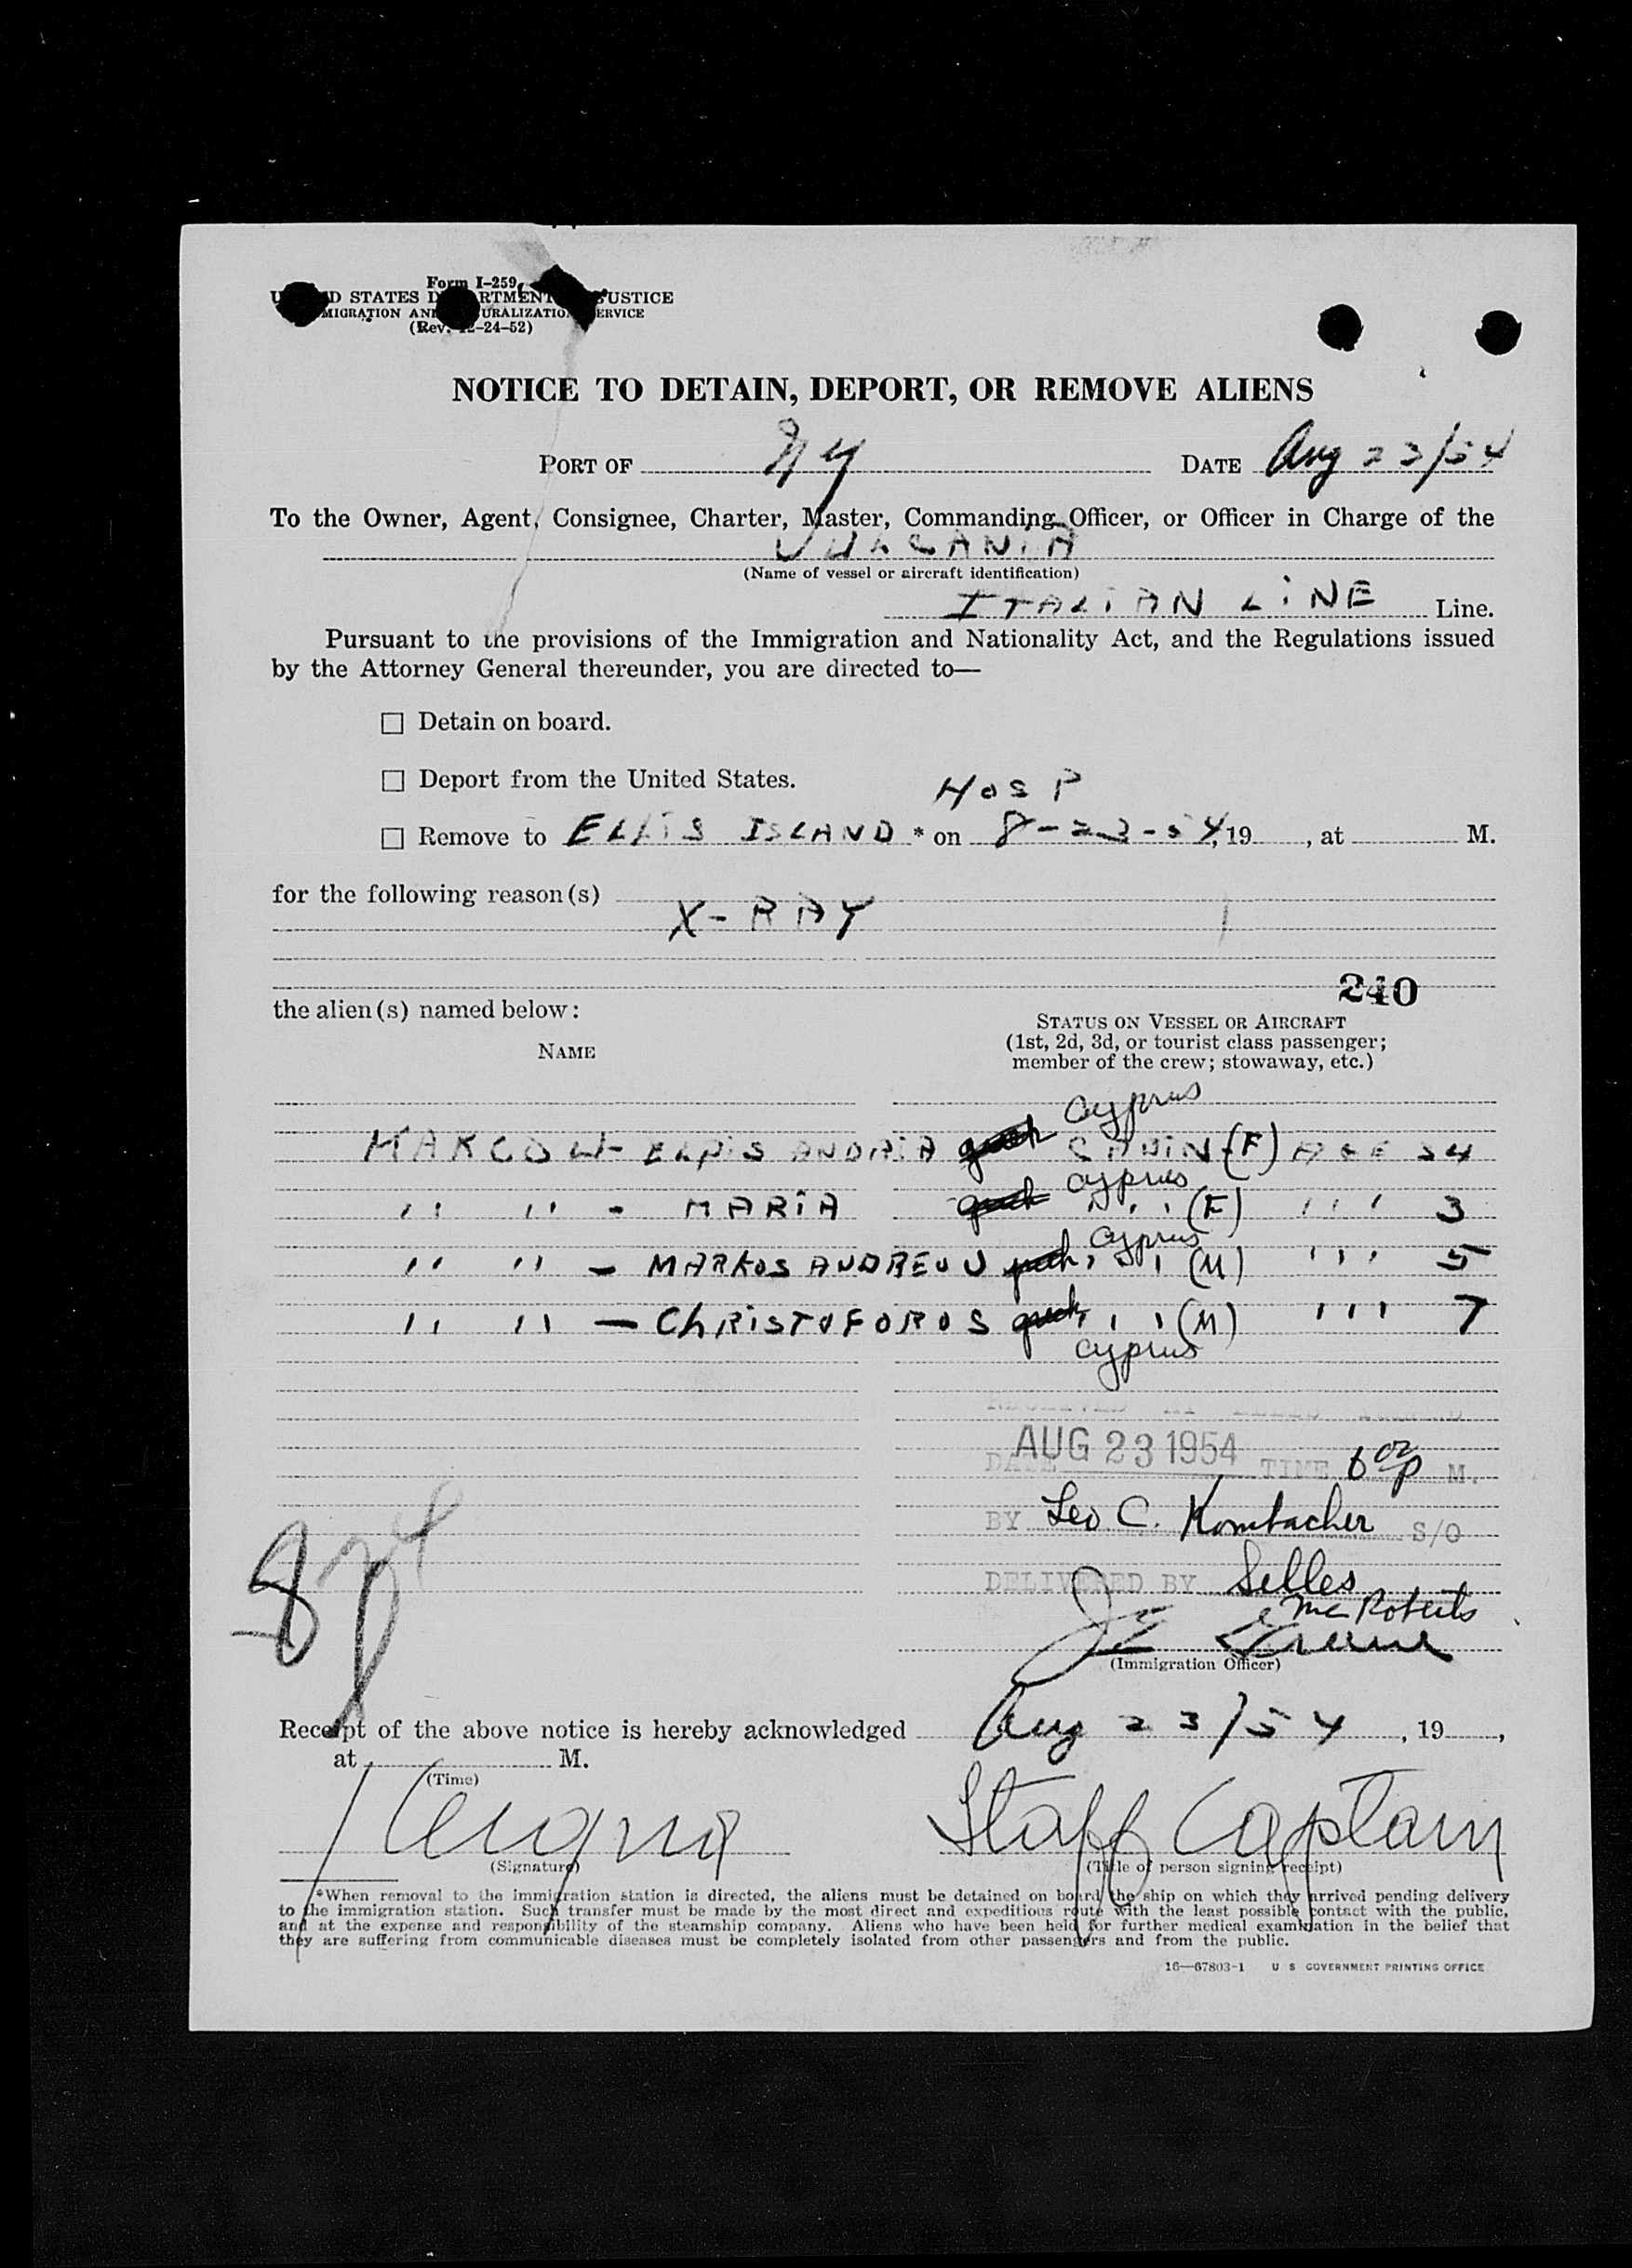 Form I-259
D STATES D RTMENT USTICE
MIGRATION AN URALIZATIO ERVICE
(Rev. 12-24-52)
NOTICE TO DETAIN, DEPORT, OR REMOVE ALIENS
PORT OF NY DATE Aug 23/54
To the Owner, Agent, Consignee, Charter, Master, Commanding Officer, or Officer in Charge of the
VULCANIA
(Name of vessel or aircraft identification)
ITALIAN LINE Line.
Pursuant to the provisions of the Immigration and Nationality Act, and the Regulations issued
by the Attorney General thereunder, you are directed to—
☐ Detain on board.
☐ Deport from the United States.
HOSP
☐ Remove to ELLIS ISLAND * on 8-23-54, 19 , at M.
for the following reason(s)
X-RAY
240
the alien(s) named below:
STATUS ON VESSEL OR AIRCRAFT
(1st, 2d, 3d, or tourist class passenger;
member of the crew; stowaway, etc.)
NAME
Cyprus
MARCOU - ELPIS ANDRIA greek CABIN (F) AGE 34
Cyprus
" " - MARIA greek " (F) " 3
Cyprus
" " - MARKOS ANDREOU greek " (M) " 5
" " - CHRISTOFOROS greek " (M) " 7
Cyprus
RECEIVED AT ELLIS ISLAND
DATE AUG 23 1954 TIME 6 00 P M.
BY Leo C. Kombacher S/O
DELIVERED BY Selles
McRoberts
(Immigration Officer)
Receipt of the above notice is hereby acknowledged Aug 23/54, 19 ,
at M.
(Time)
Staff Captain
(Signature) (Title of person signing receipt)
*When removal to the immigration station is directed, the aliens must be detained on board the ship on which they arrived pending delivery
to the immigration station. Such transfer must be made by the most direct and expeditious route with the least possible contact with the public,
and at the expense and responsibility of the steamship company. Aliens who have been held for further medical examination in the belief that
they are suffering from communicable diseases must be completely isolated from other passengers and from the public.
16—67803-1 U S GOVERNMENT PRINTING OFFICE